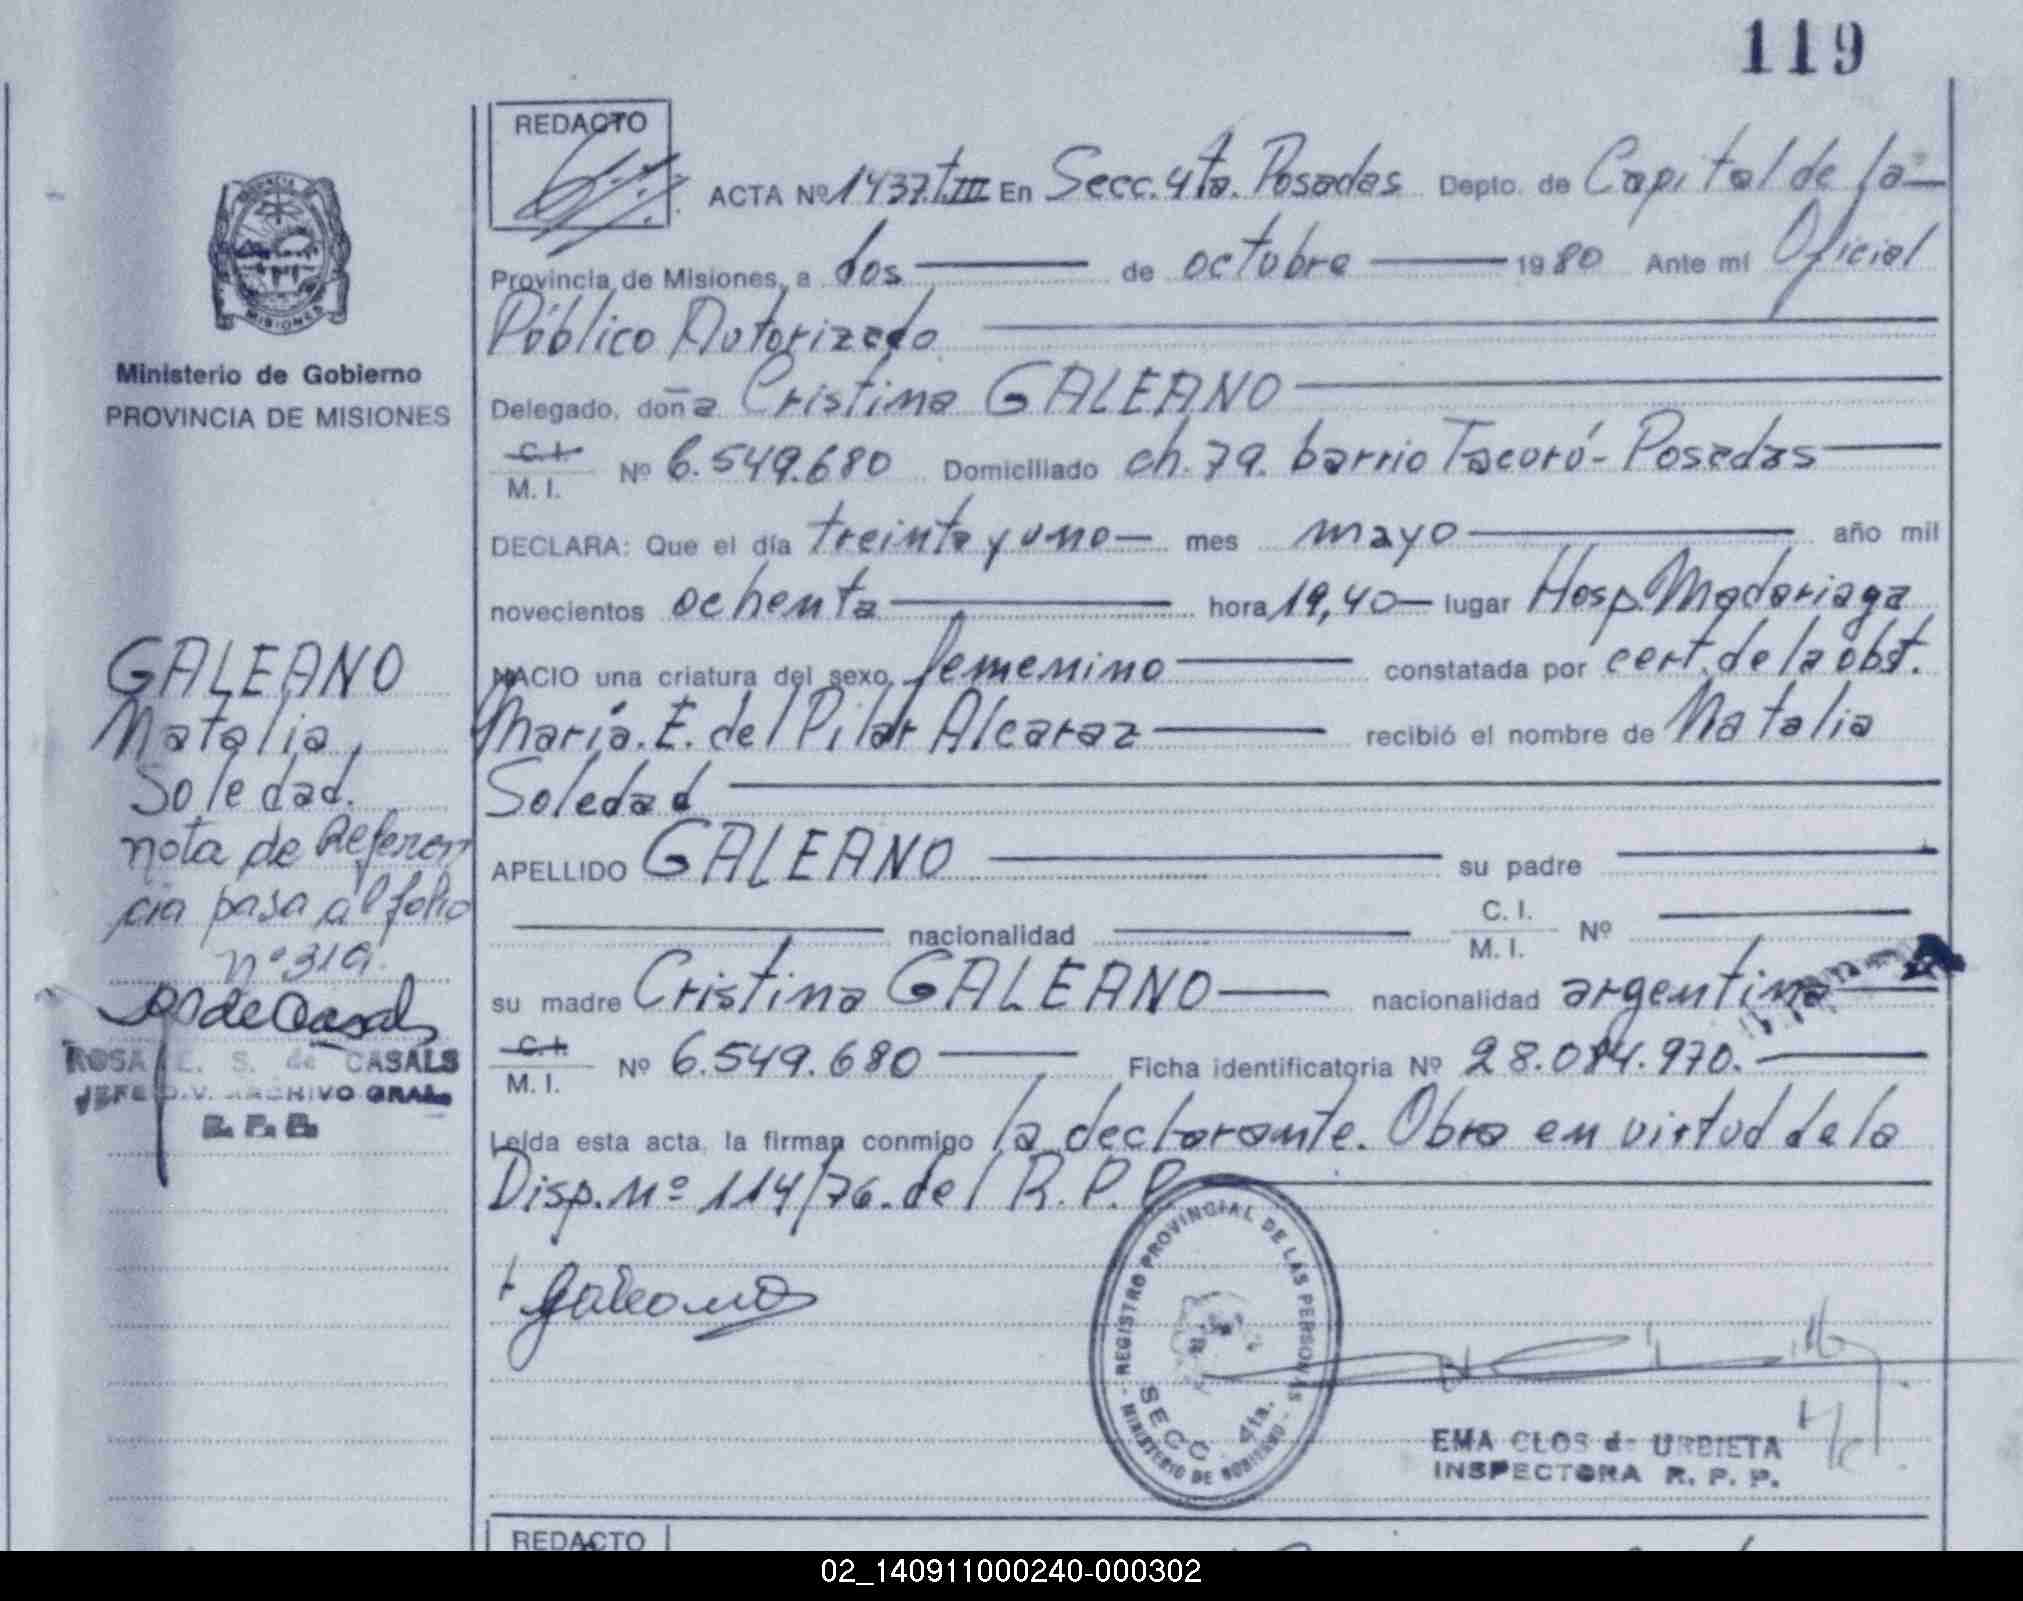 119
REDACTO
ACTA Nº 1437.T.III En Secc. 4ta. Posadas Depto. de Capital de la
Provincia de Misiones, a dos de octubre 1980 Ante mi Oficial
Público Autorizado
Delegado, doña Cristina GALEANO
C.I. M. I. Nº 6.549.680 Domiciliado ch. 79. barrio Tacurú - Posadas
DECLARA: Que el día treinta y uno mes mayo año mil
novecientos ochenta hora 19,40 lugar Hosp. Madariaga
NACIO una criatura del sexo femenino constatada por cert. de la obst.
María. E. del Pilar Alcaraz recibió el nombre de Natalia
Soledad
APELLIDO GALEANO su padre
nacionalidad C. I. M. I. Nº
su madre Cristina GALEANO nacionalidad argentina
C.I. M. I. Nº 6.549.680 Ficha identificatoria Nº 28.084.970.
Leída esta acta, la firman conmigo la declarante. Obra en virtud de la
Disp. Nº 114/76. del R. P. P.
Galeano
REGISTRO PROVINCIAL DE LAS PERSONAS
SECC. 4ta.
MINISTERIO DE GOBIERNO
EMA CLOS de URBIETA
INSPECTORA R. P. P.
REDACTO
PROVINCIA DE
MISIONES
Ministerio de Gobierno
PROVINCIA DE MISIONES
GALEANO
Natalia,
Soledad.
nota de Referen
cia pasa al folio
nº 319.
RS de Casals
ROSA E. S. de CASALS
JEFE DIV. ARCHIVO GRAL.
R. P. P.
02_140911000240-000302